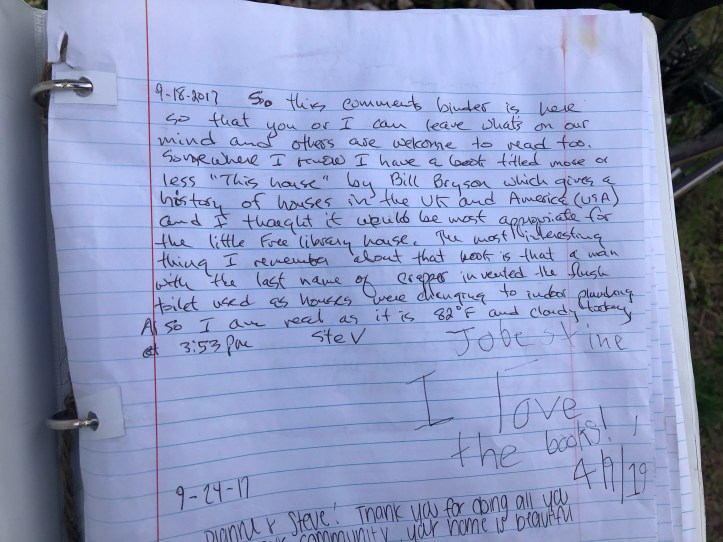 9-18-2017 So this comments binder is here
so that you or I can leave what's on our
mind and others are welcome to read too.
Somewhere I know I have a book titled more or
less "This house" by Bill Bryson which gives a
history of houses in the UK and America (USA)
and I thought it would be most appropriate for
the little Free library house. The most interesting
thing I remember about that book is that a man
with the last name of Crapper invented the flush
toilet used as houses were changing to indoor plumbing
Also I am as it is 82°F and cloudy today
at 3:53 pm SteV
I love
the books!
4/9/19
9-24-17
Steve! Thank you for doing all you
community, your home is beautiful